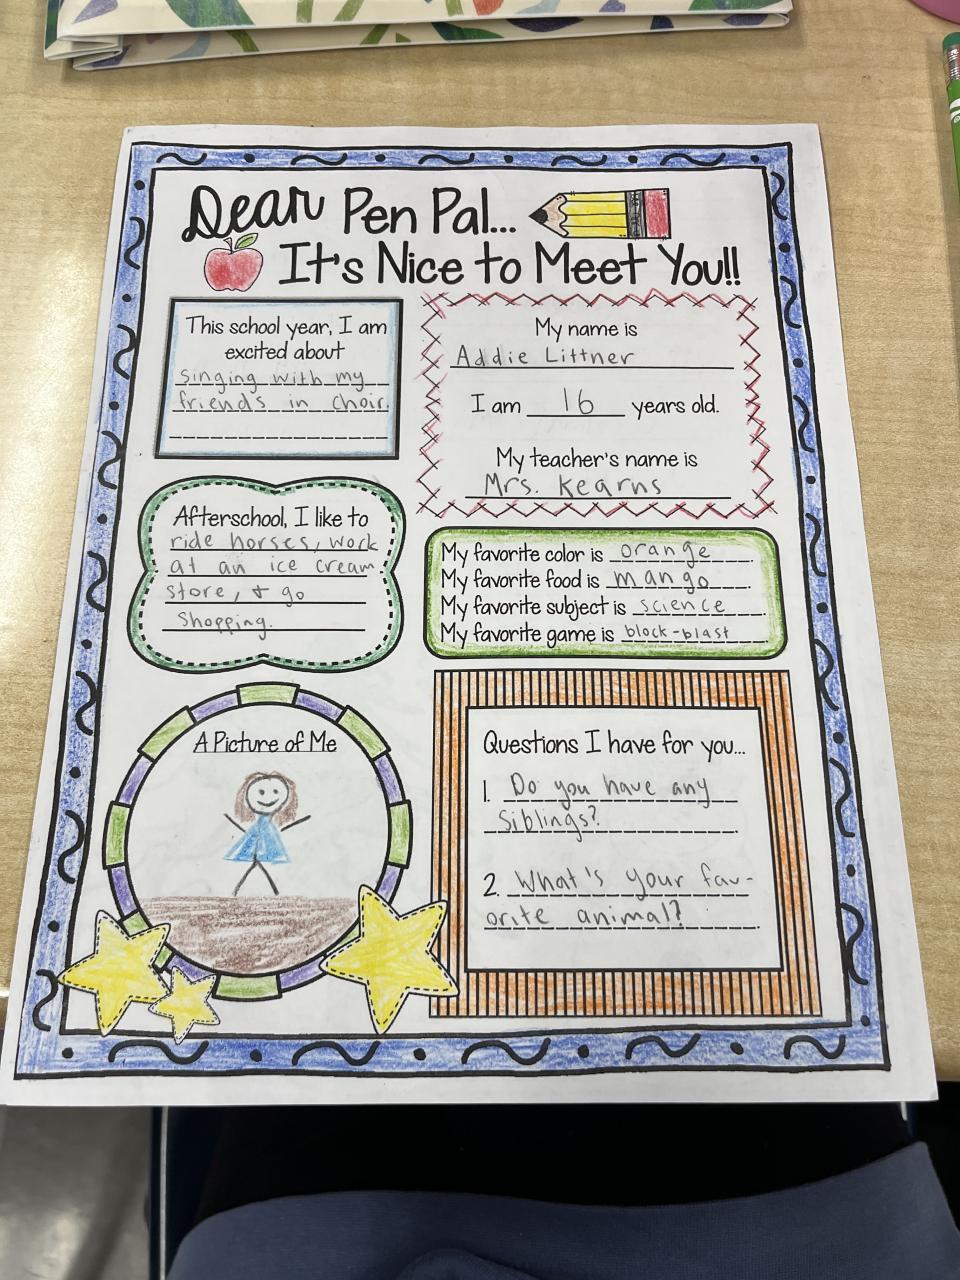 Dear Pen Pal...
It's Nice to Meet You!!
This school year, I am
excited about
singing with my
friends in choir.
My name is
Addie Littner
I am 16 years old.
My teacher's name is
Mrs. Kearns
Afterschool, I like to
ride horses, work
at an ice cream
store, & go
shopping.
My favorite color is orange.
My favorite food is mango.
My favorite subject is science.
My favorite game is block-blast.
A Picture of Me
Questions I have for you...
1. Do you have any
siblings?
2. What's your fav-
orite animal?